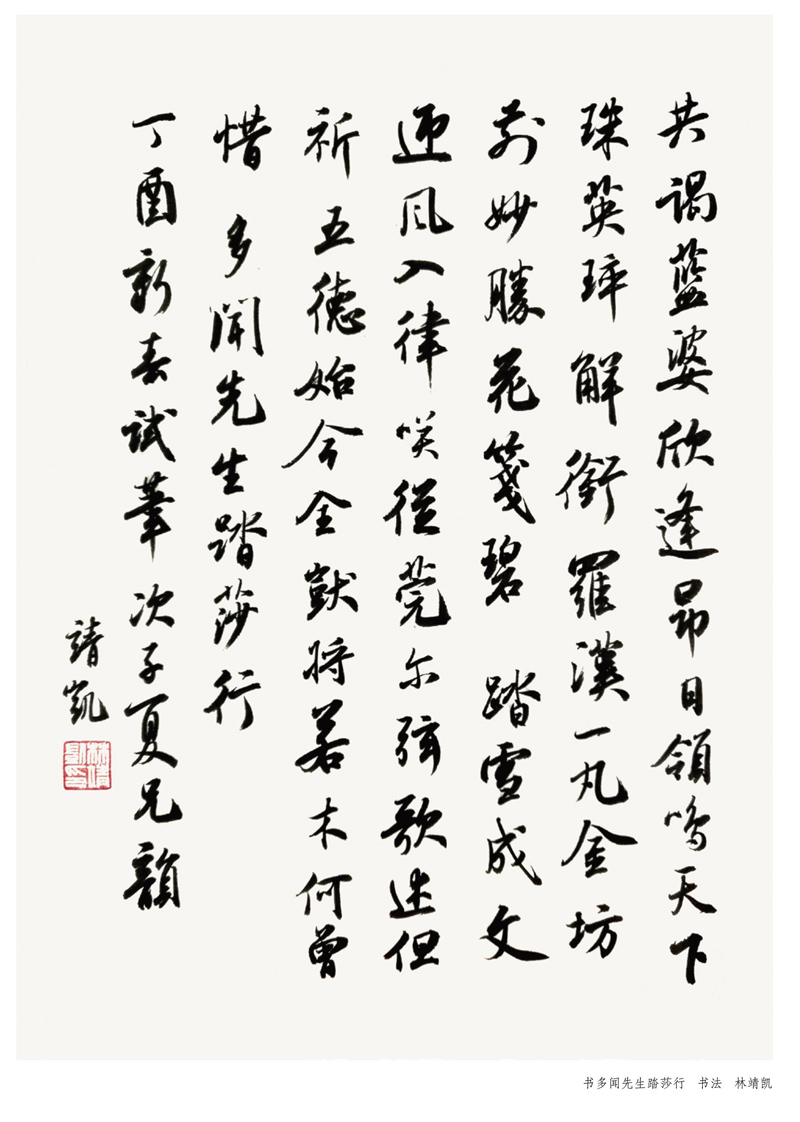 共謁藍婆欣逢昴日領鳴天下
珠英解銜羅漢一丸金坊
前妙勝花箋碧 踏雪成文
迎風入律咲從莞尔弦歌但
祈五德始今全獸將若木何曾
惜 多聞先生踏莎行
丁酉新春試筆次子夏兄韻
靖凱
书多闻先生踏莎行 书法 林靖凯